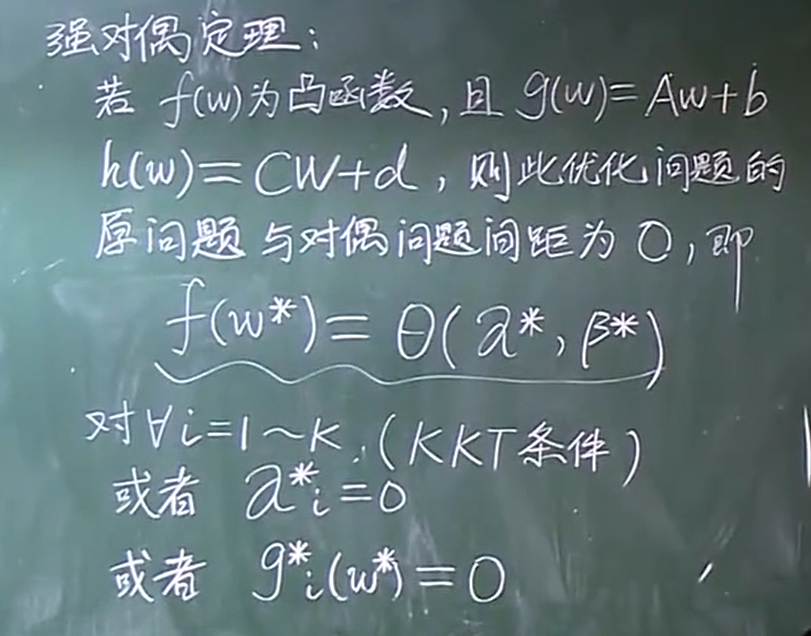 强对偶定理：
若 f(w)为凸函数，且 g(w)=Aw+b
h(w)=CW+d，则此优化问题的
原问题与对偶问题间距为0，即
f(w*)=θ(α*,β*)
对∀i=1~K，(KKT条件)
或者 α*i=0
或者 g*i(w*)=0